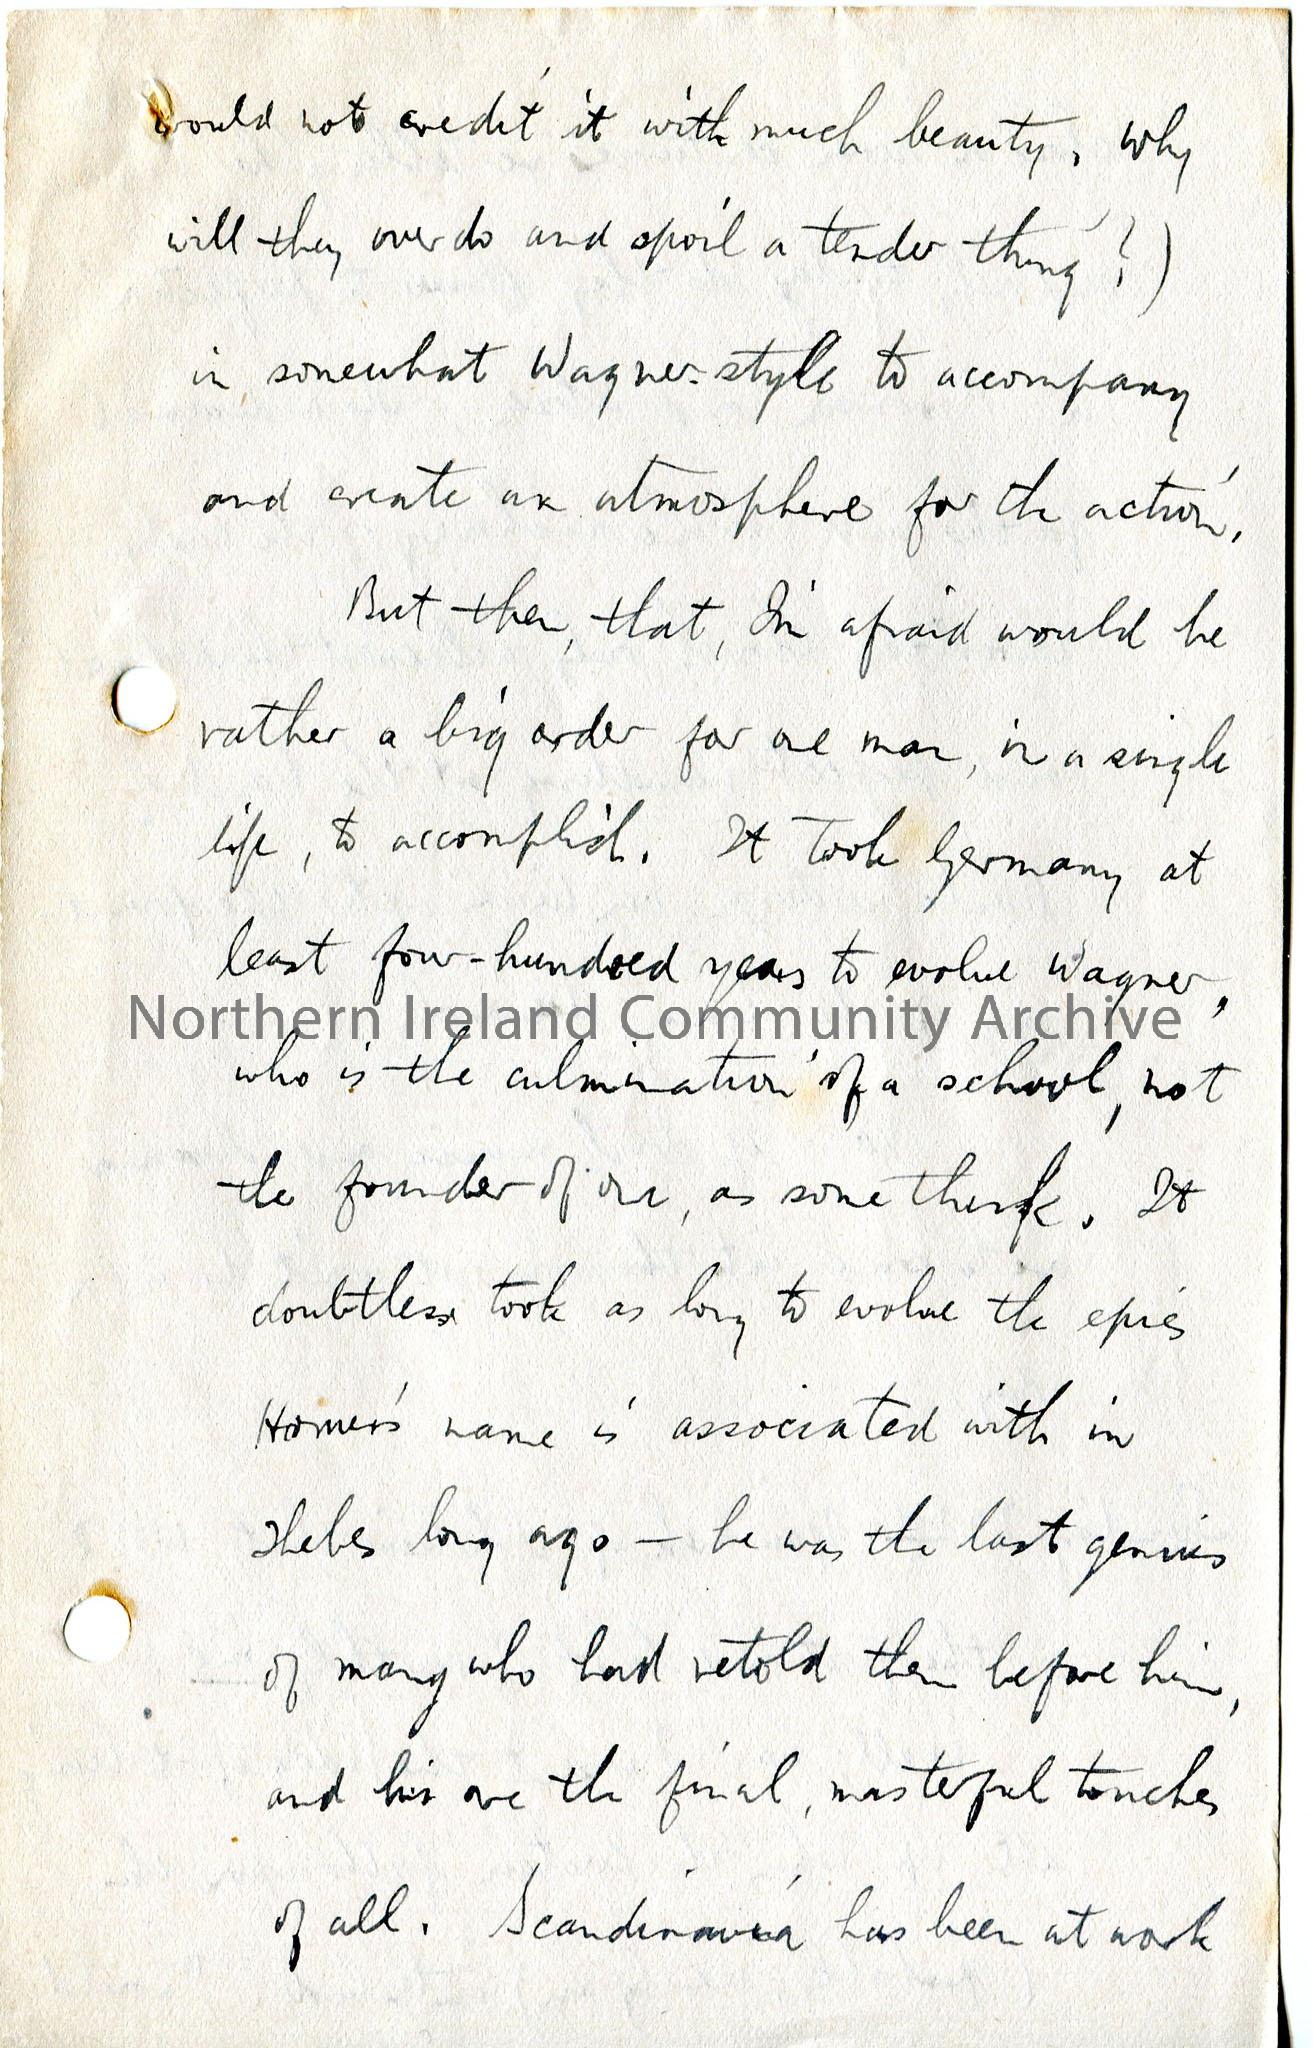 would not credit it with much beauty, why
will they overdo and spoil a tender thing?)
in somewhat Wagner-style to accompany
and create an atmosphere for the action.
But then, that, I'm afraid would be
rather a big order for one man, in a single
life, to accomplish. It took Germany at
least four-hundred years to evolve Wagner,
Northern Ireland Community Archive
who is the culmination of a school, not
the founder of one, as some think. It
doubtless took as long to evolve the epics
Homer's name is associated with in
Thebes long ago — he was the last genius
of many who had retold them before him,
and his are the final, masterful touches
of all. Scandinavia has been at work